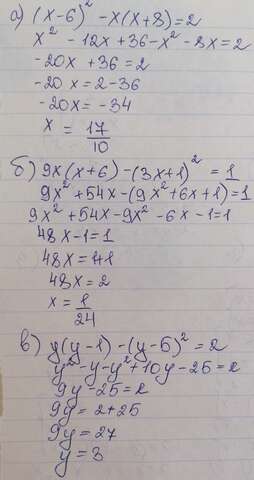 а) (x-6)² - x(x+8)=2
x² - 12x +36-x² - 8x=2
-20x +36=2
-20x=2-36
-20x=-34
x = 17/10
б) 9x(x+6) -(3x+1)² =1
9x² +54x-(9x²+6x+1)=1
9x² +54x-9x² -6x -1=1
48x-1=1
48x=1+1
48x=2
x = 1/24
в) y(y-1) -(y-5)² =2
y² -y-y²+10y-25=2
9y-25=2
9y=2+25
9y=27
y=3